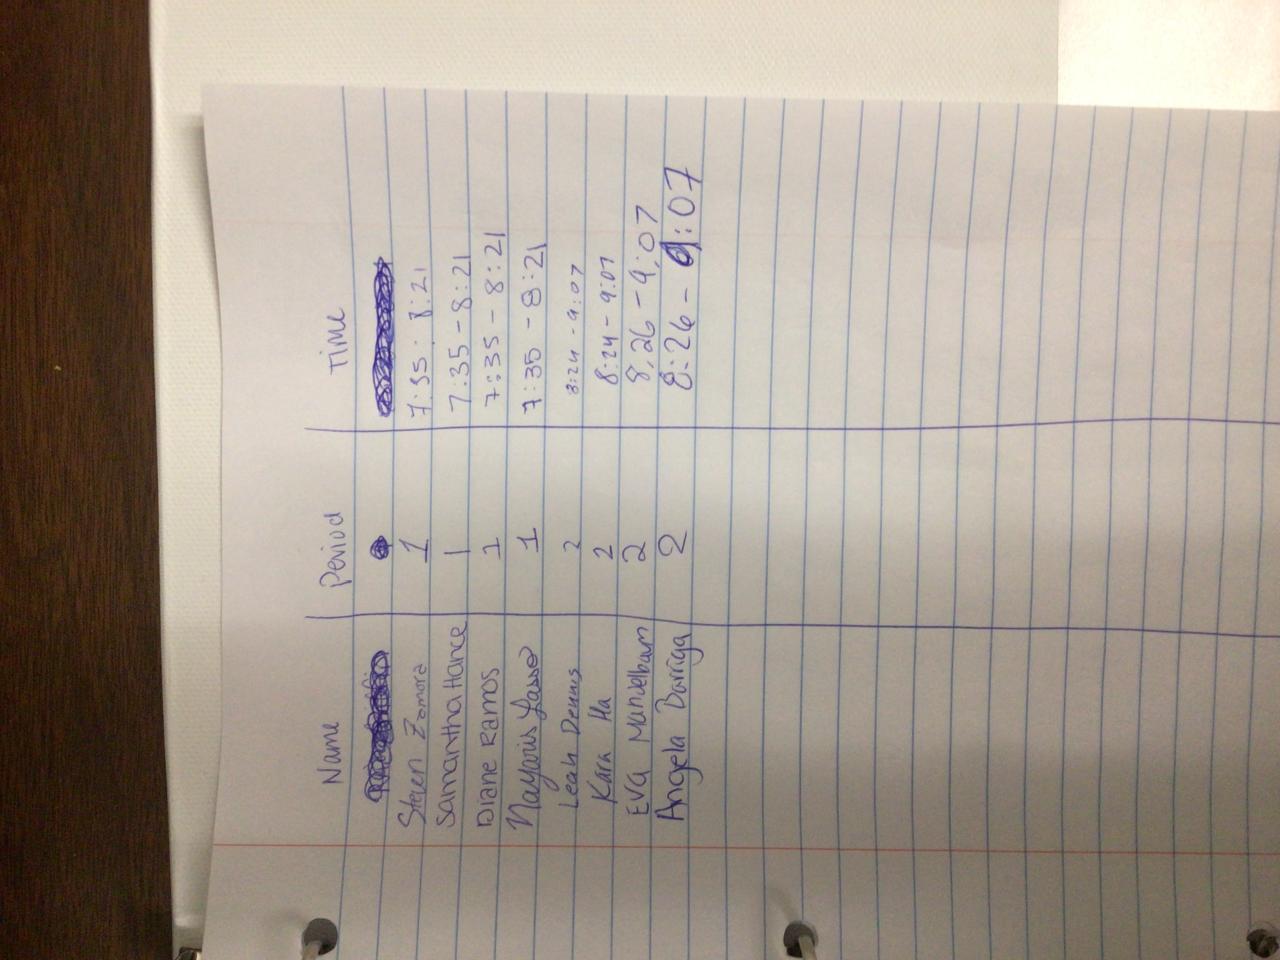 Name Period Time
Steven Zamora 1 7:35 - 8:21
Samantha Hance 1 7:35 - 8:21
Diane Ramos 1 7:35 - 8:21
Nayaris 1 7:35 - 8:21
Leah Dennis 2 8:24 - 9:07
Kara Ha 2 8:24 - 9:07
Eva Mandelbaum 2 8:26 - 9:07
Angela Barriga 2 8:26 - 9:07